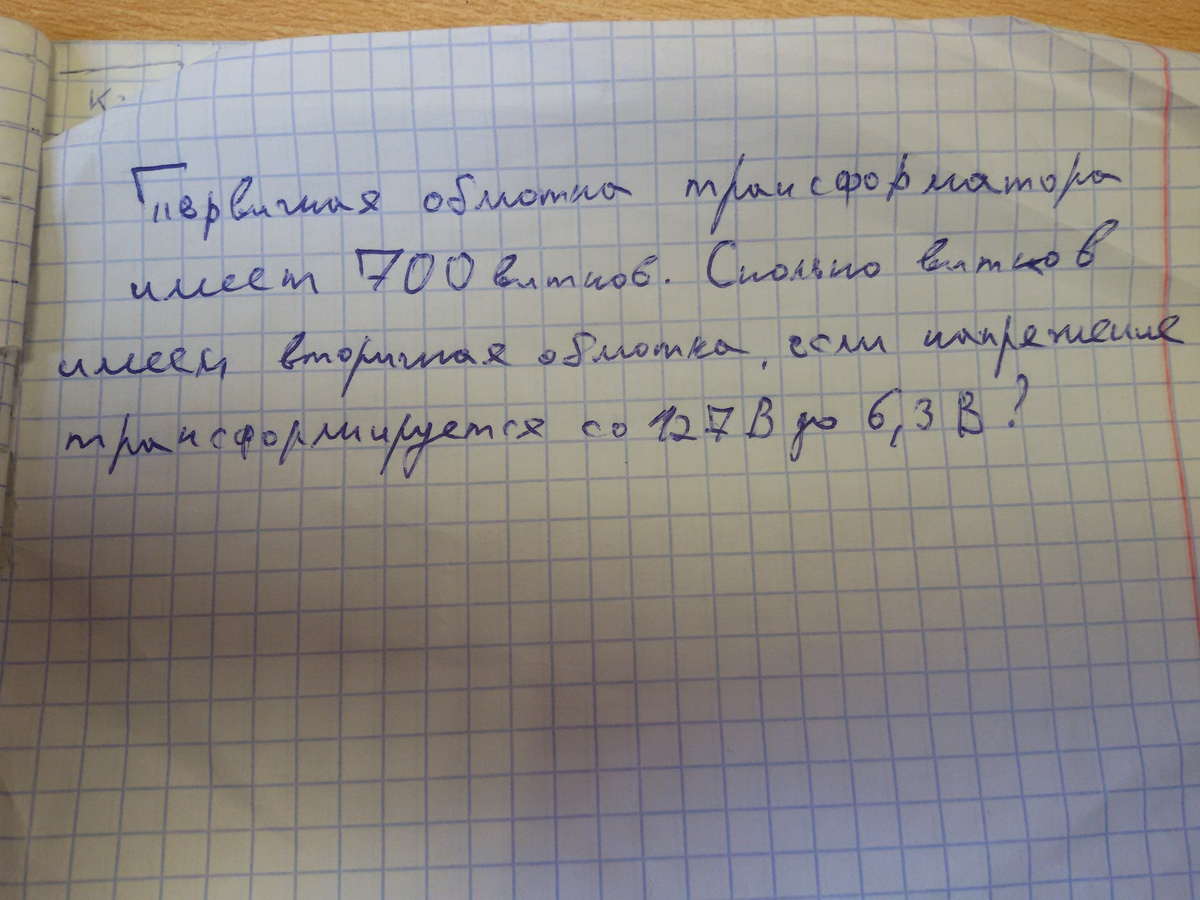 К:
Первичная обмотка трансформатора
имеет 700 витков. Сколько витков
имеец вторичная обмотка, если напряжение
трансформируется со 127 В до 6,3 В?